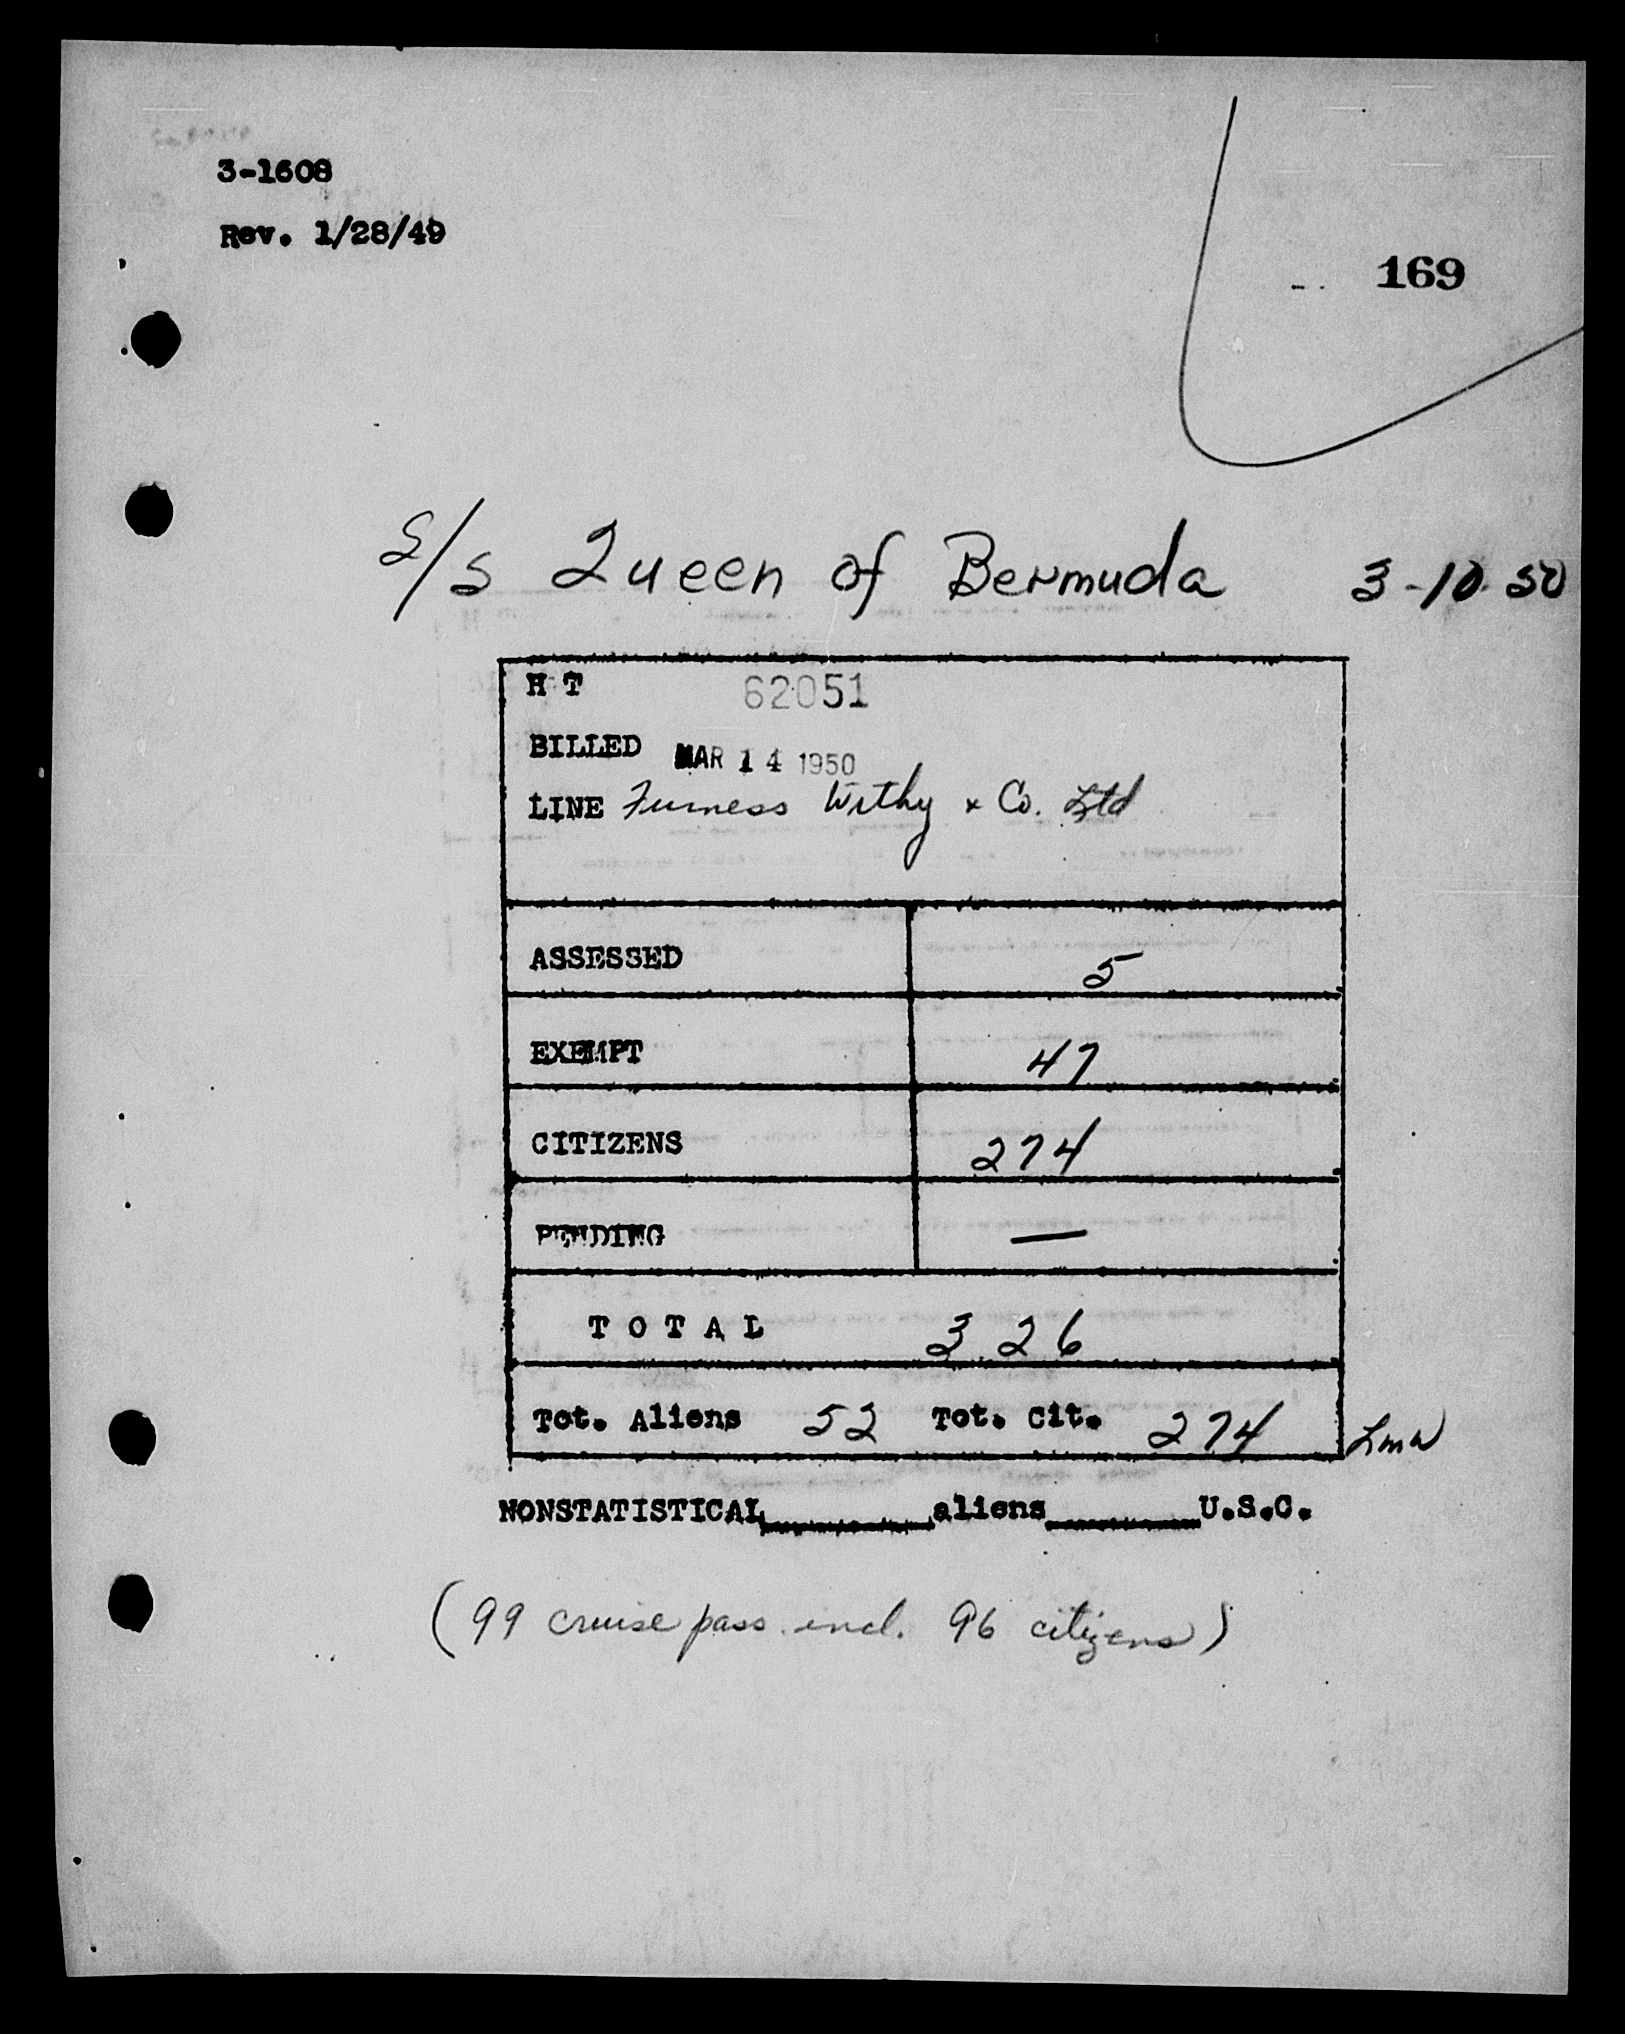 3-1608
Rev. 1/28/49
169
S/S Queen of Bermuda 3-10-50
H T 62051
BILLED MAR 14 1950
LINE Furness Withy & Co. Ltd
ASSESSED 5
EXEMPT 47
CITIZENS 274
PENDING —
T O T A L 326
Tot. Aliens 52 Tot. Cit. 274 Lmw
NONSTATISTICAL__________aliens__________U.S.C.
(99 cruise pass. incl. 96 citizens)